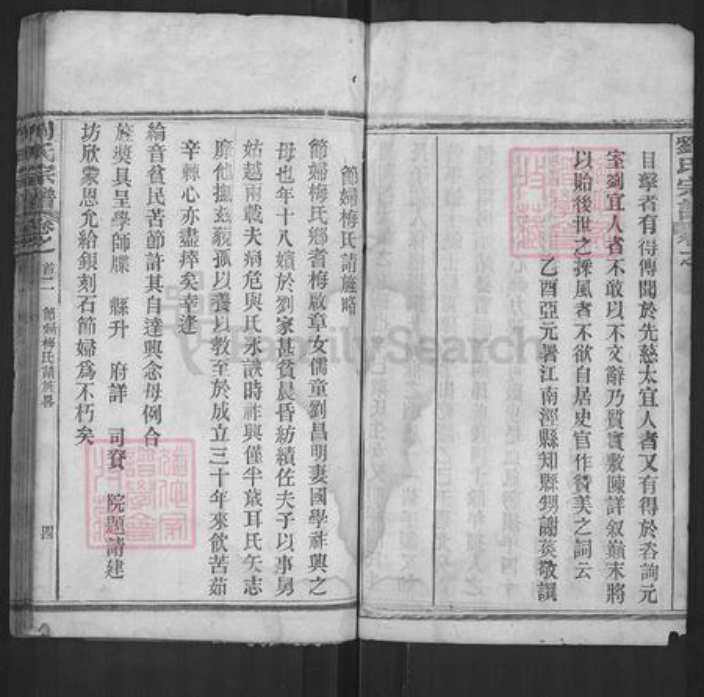 目擊者有得傳聞於先慈太宜人者又有得於咨詢元
室劉宜人者不敢以不文辭乃質實敷陳詳叙巔末將
以貽後世之採風者不欲自居史官作贊美之詞云
乙酉亞元署江南涇縣知縣甥謝葵敬譔
節婦梅氏請旌略
節婦梅氏鄉耆梅啟章女儒童劉昌明妻國學祚興之
母也年十八嬪於劉家甚貧晨昏紡績佐夫子以事舅
姑越兩載夫病危與氏永訣時祚興僅半歲耳氏矢志
靡他撫茲藐孤以養以教至於成立三十年來飲苦茹
辛棘心亦盡瘁矣幸逢
綸音貧民苦節許其自達興念母例合
旌奬具呈學師牒 縣升 府詳 司賫 院題請建
坊欣蒙恩允給銀刻石節婦為不朽矣
劉氏宗譜 卷之 首二 節婦梅氏請旌畧 四
劉氏宗譜 卷之
FamilySearch